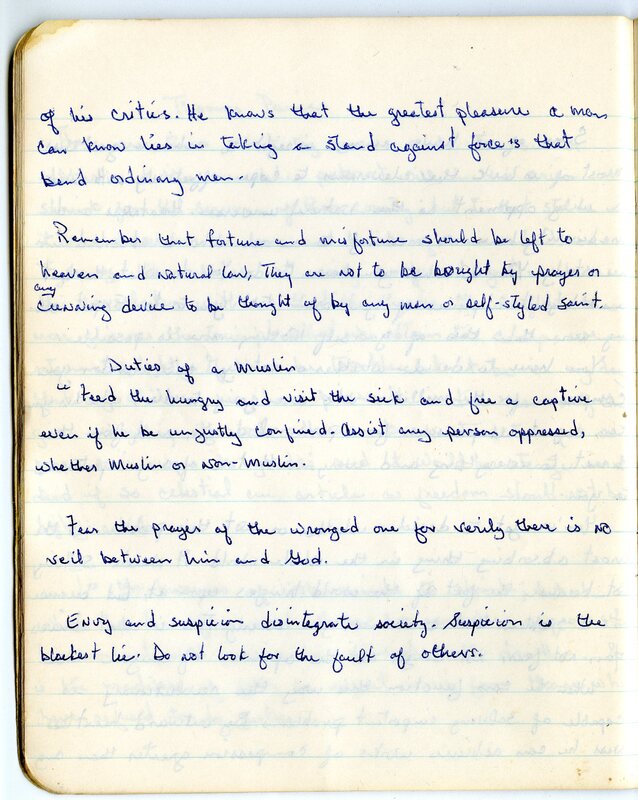 of his critics. He knows that the greatest pleasure a man
can know lies in taking a stand against forces that
bend ordinary men.
Remember that fortune and misfortune should be left to
heaven and natural law, They are not to be bought by prayer or
any
cunning device to be thought of by any man or self-styled saint.
Duties of a Muslim
"Feed the hungry and visit the sick and free a captive
even if he be unjustly confined. Assist any person oppressed,
whether Muslim or non-Muslim.
Fear the prayer of the wronged one for verily there is no
veil between him and God.
Envy and suspicion disintegrate society. Suspicion is the
blackest lie. Do not look for the fault of others.